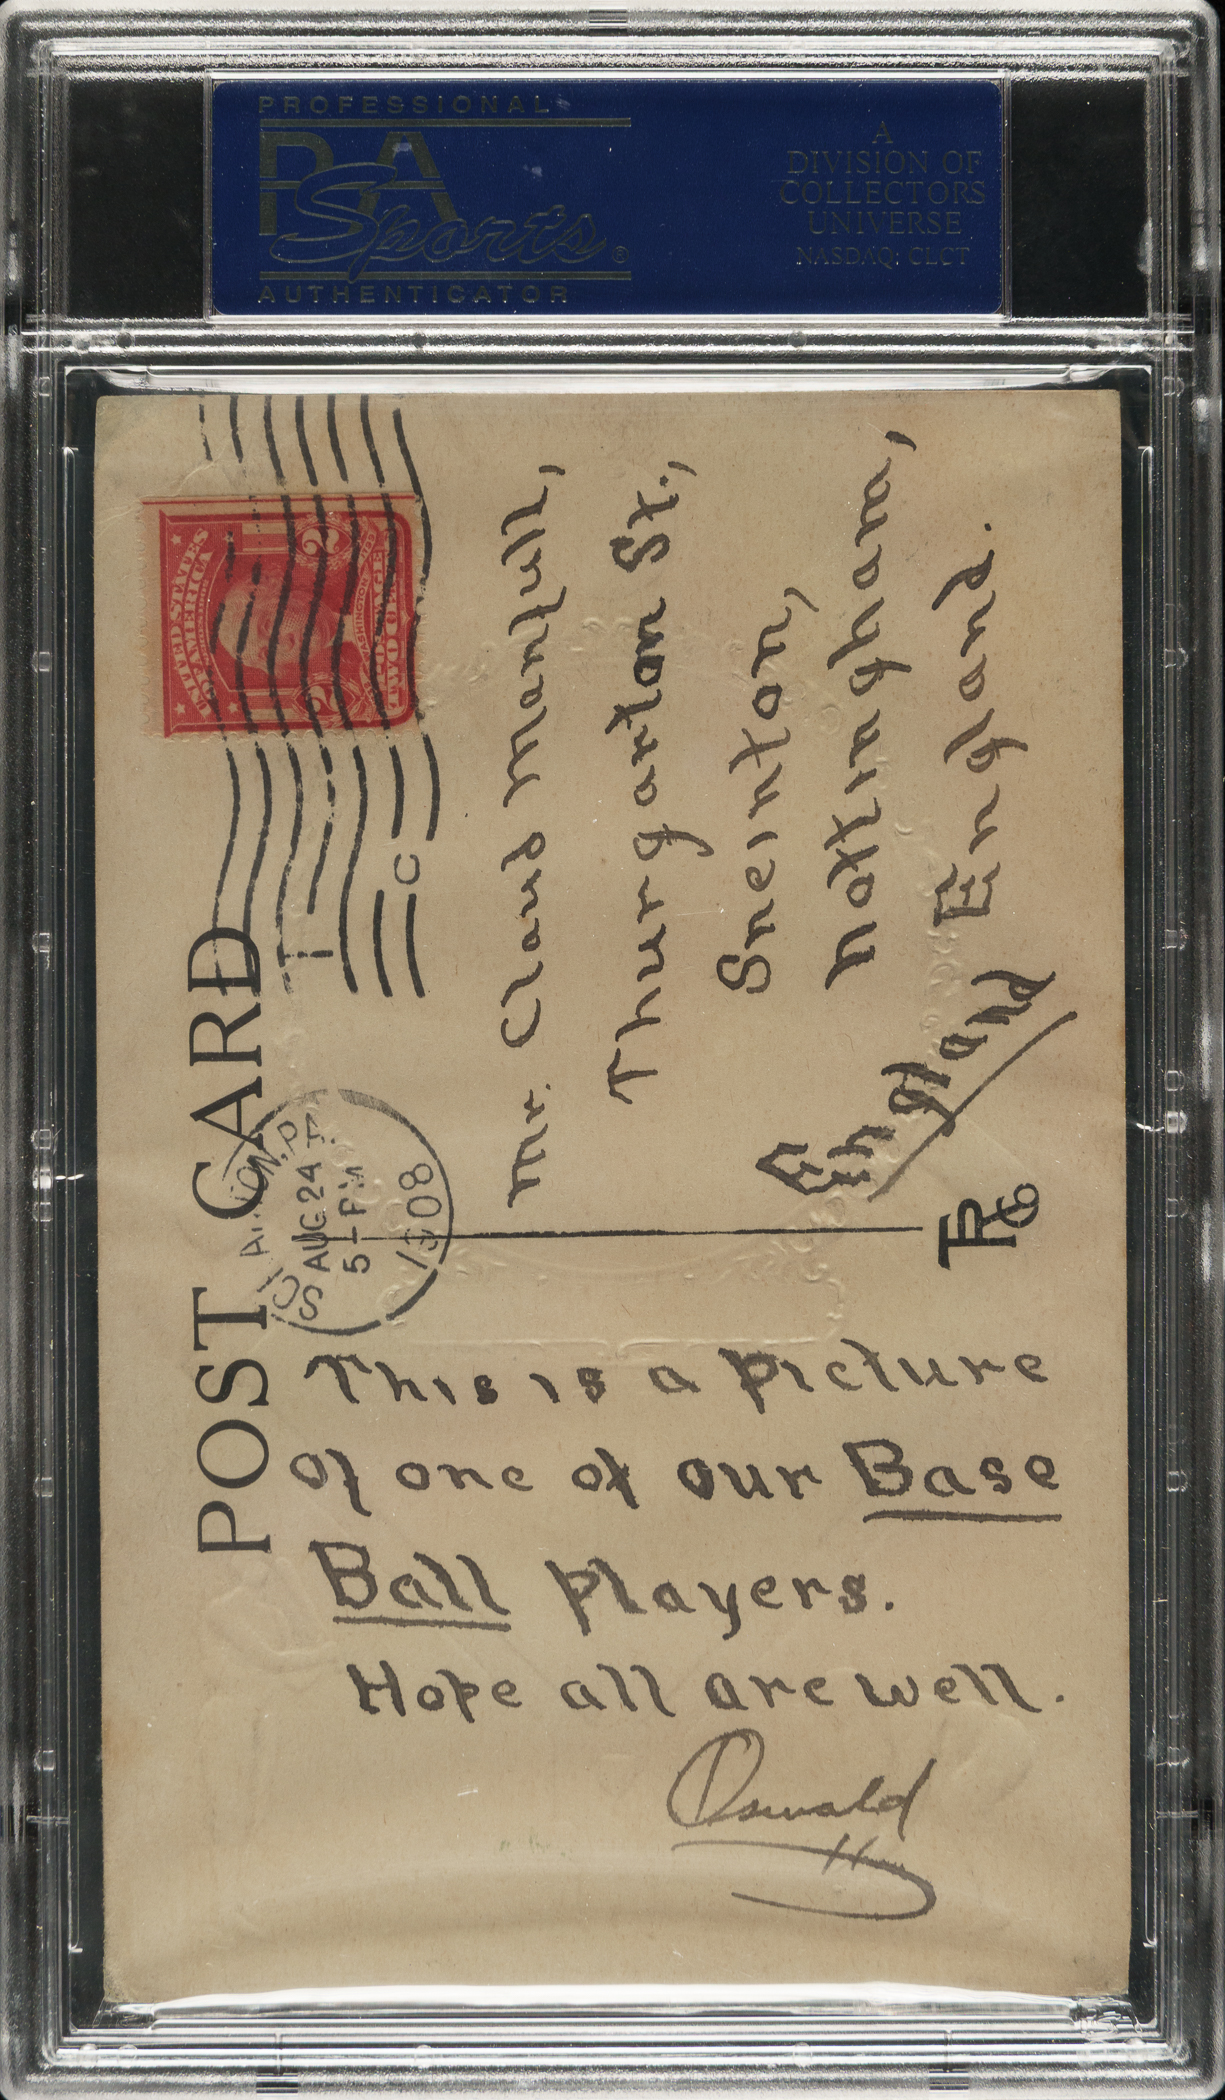 PROFESSIONAL
PSA
Sports®
AUTHENTICATOR
A
DIVISION OF
COLLECTORS
UNIVERSE
NASDAQ: CLCT
POST CARD
UNITED STATES
OF AMERICA
WASHINGTON
POSTAGE
TWO 2 2
AUG 24
5 - PM
1908
T
C
Mr. Claud Manfull,
Thurgarton St.,
Sneinton,
Nottingham,
England.
England
This is a picture
of one of our Base
Ball Players.
Hope all are well.
Oswald